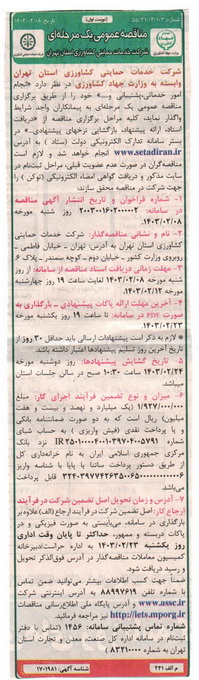 شماره: ۵۵/۳۱۰۴/۱۰۳
(نوبت اول)
تاریخ: ۱۴۰۳/۰۲/۰۸
مناقصه عمومی یک مرحله‌ای
شرکت خدمات حمایتی کشاورزی استان تهران
شرکت خدمات حمایتی کشاورزی استان تهران
وابسته به وزارت جهاد کشاورزی در نظر دارد «انجام
امور خدماتی،پشتیبانی و ...» خود را از طریق برگزاری
مناقصه عمومی یک مرحله‌ای به پیمانکاران واجد شرایط
واگذار نماید، کلیه مراحل برگزاری مناقصه از دریافت
اسناد، ارائه پیشنهاد، بازگشایی نرخهای پیشنهادی از
بستر سامانه تدارک الکترونیکی دولت (ستاد) به آدرس
www.setadiran.ir انجام خواهد شد و لازم است
مناقصه‌گران در صورت عدم عضویت قبلی، مراحل ثبت‌نام در
سایت مذکور و دریافت گواهی امضاء الکترونیکی (توکن) را
جهت شرکت در مناقصه محقق سازند:
۱- شماره فراخوان و تاریخ انتشار آگهی مناقصه
در سامانه: ۲۰۰۳۰۰۱۶۰۲۰۰۰۰۰۲ روز شنبه مورخه
۱۴۰۳/۰۲/۰۸.
۲- نام و نشانی مناقصه‌گذار: شرکت خدمات حمایتی
کشاورزی استان تهران به آدرس: تهران - خیابان فاطمی -
روبروی وزارت کشور - خیابان دوم - کوچه سمندر - پلاک ۶
۳- مهلت زمانی دریافت اسناد مناقصه از سامانه: از روز
شنبه مورخه ۱۴۰۳/۰۲/۰۸ لغایت ساعت ۱۹ روز چهارشنبه
مورخه ۱۴۰۳/۰۲/۱۲
۴- آخرین مهلت ارائه پاکات پیشنهادی - بارگذاری به
صورت PDF در سامانه: تا ساعت ۱۹ روز یکشنبه مورخه
۱۴۰۳/۰۲/۲۳
* لازم به ذکر است پیشنهادات ارسالی باید حداقل ۳۰ روز از
تاریخ آخرین روز تسلیم پیشنهادها اعتبار داشته باشد.
۵- تاریخ گشایش پیشنهادها: روز دوشنبه مورخه
۱۴۰۳/۰۲/۲۴ ساعت ۱۰:۳۰ صبح در سالن جلسات استان
میباشد.
۶- میزان و نوع تضمین فرآیند اجرای کار: مبلغ
۱/۹۲۷/۰۰۰/۰۰۰ (یک میلیارد و نهصد و بیست و هفت
میلیون) ریال است که به دو صورت ضمانتنامه بانکی
و یا پرداخت نقدی (فیش واریزی) به حساب شبای
شماره IR۲۵۰۱۰۰۰۰۴۰۰۱۰۳۹۷۰۴۰۰۵۷۹۱ نزد بانک
مرکزی جمهوری اسلامی ایران به نام خزانه‌داری کل
از طریق دستور پرداخت ساتنا یا پایا با شناسه واریز
۳۲۴۰۳۹۷۷۴۲۶۳۵۰۰۶۵۰۰۰۰۰۰۰۰۰۰۰ قابل پرداخت
می‌باشد.
۷- آدرس و زمان تحویل اصل تضمین شرکت در فرآیند
ارجاع کار: اصل تضمین شرکت در فرآیند ارجاع (الف) علاوه بر
بارگذاری در سامانه، می‌بایستی به صورت فیزیکی و در
پاکات دربسته و ممهور، حداکثر تا پایان وقت اداری
روز یکشنبه ۱۴۰۳/۰۲/۲۳ به اداره حراست/دبیرخانه
کمیسیون معاملات مناقصه‌گذار در آدرس فوق‌الذکر تحویل
و رسید دریافت شود.
ضمناً جهت کسب اطلاعات بیشتر می‌توانید ضمن تماس
با شماره تلفن ۸۸۹۹۷۶۱۹ به آدرس اینترنتی شرکت
www.assc.ir و آدرس پایگاه ملی اطلاع‌رسانی مناقصات
http://iets.mporg.ir نیز مراجعه فرمایید.
شماره تماس پشتیبانی سامانه: ۱۴۵۶ (تماس با دفتر
ثبت‌نام در سامانه اداره کل صنعت، معدن و تجارت استان
تهران به شماره ۸۳۳۲۱۰۰۰ )
م الف ۲۴۱
شناسه آگهی: ۱۷۰۱۹۸۱